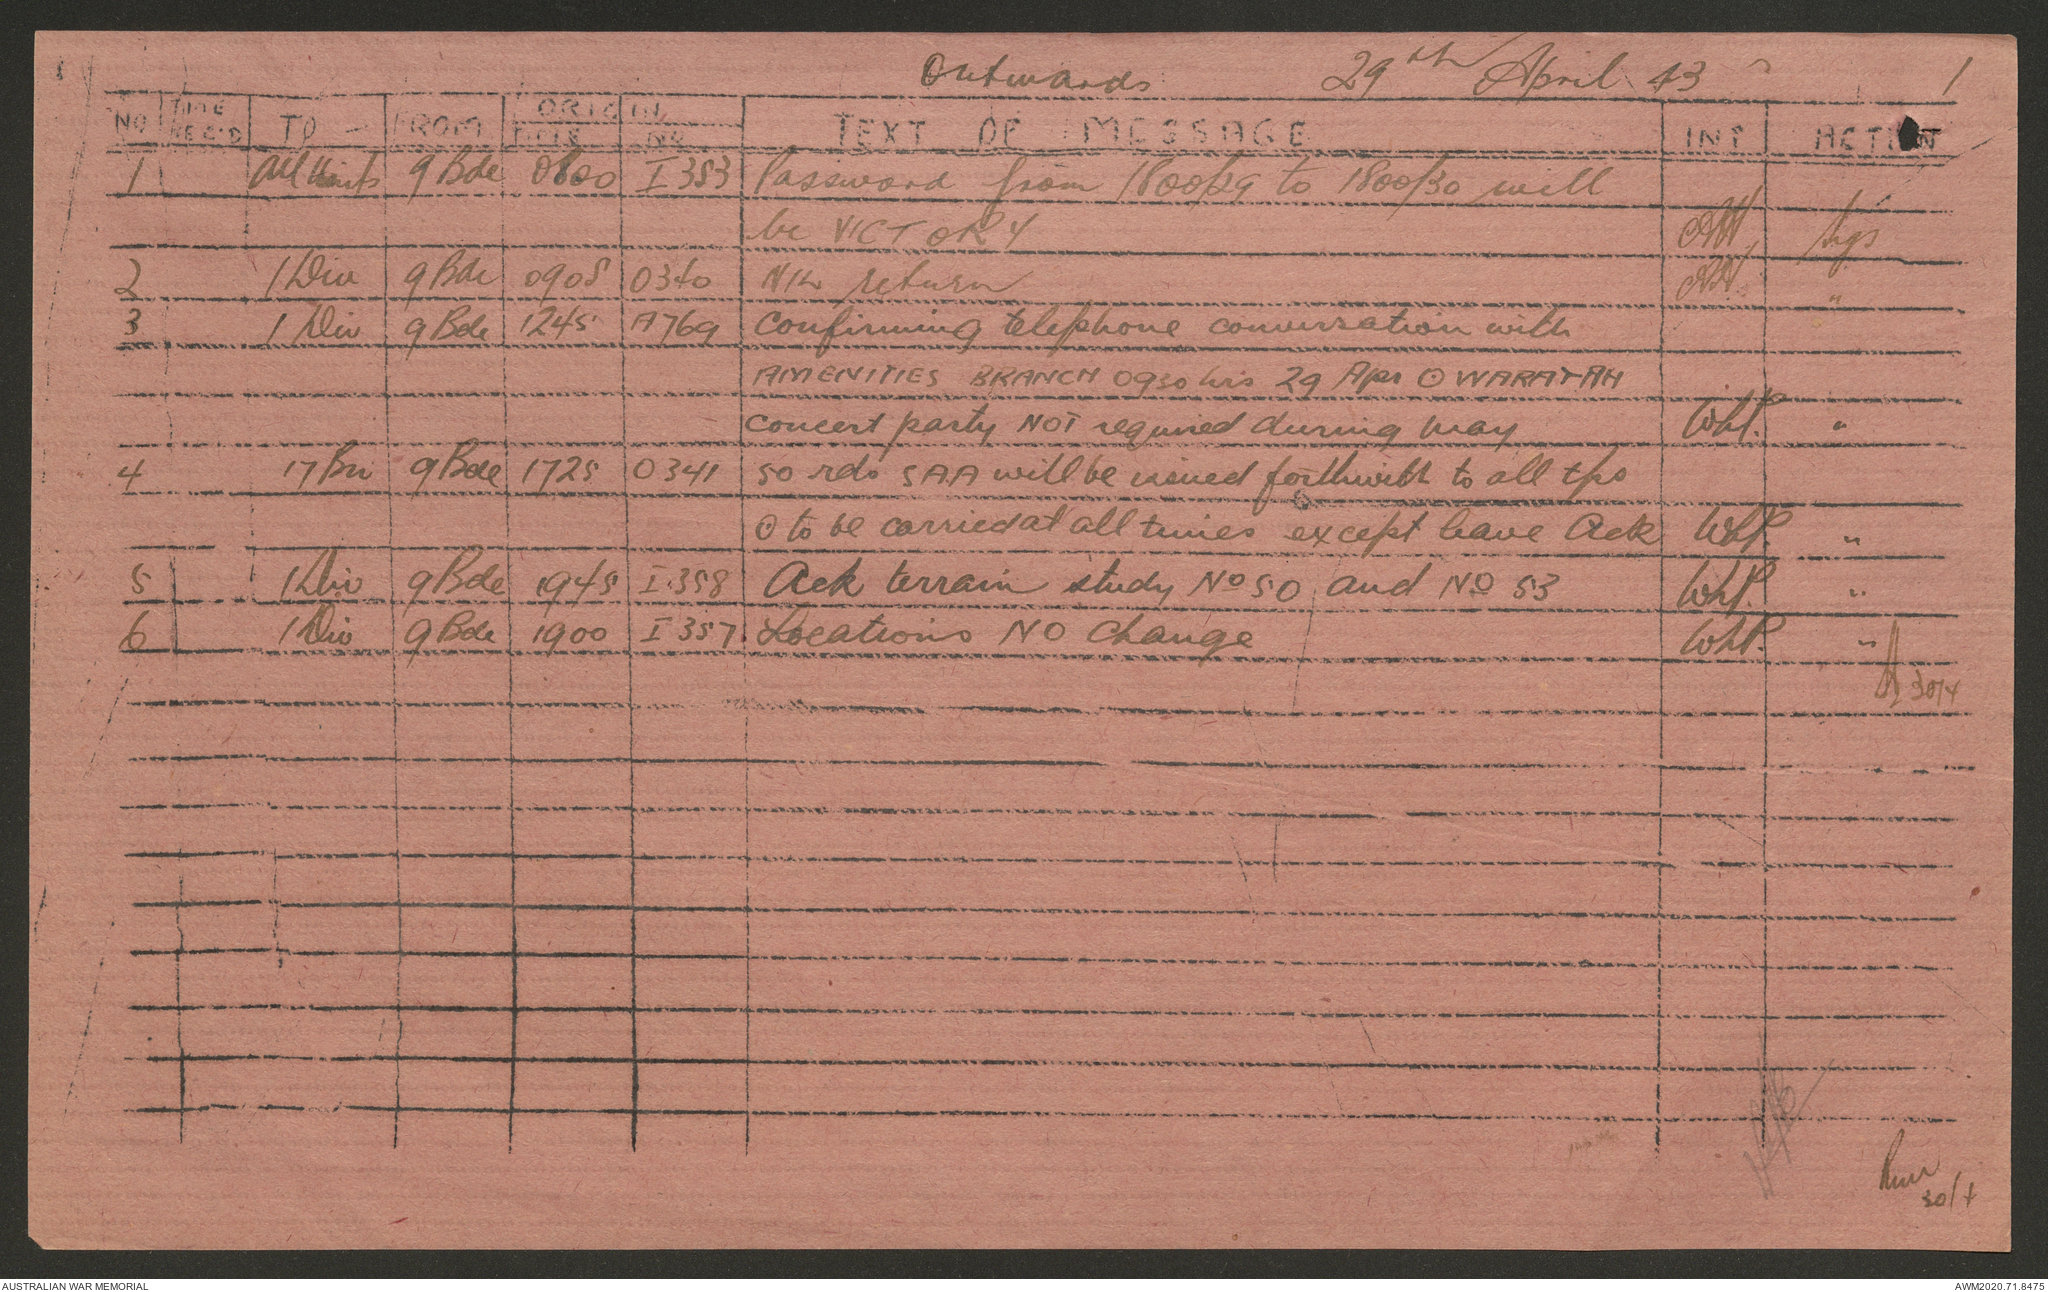 Outwards 29th April 43 1
NO TIME REC'D TO FROM ORIGIN TEXT OF MESSAGE INT ACTION
TIME NR
1 All Units 9 Bde 0800 I353 Password from 1800/29 to 1800/30 will
be VICTORY
2 1 Div 9 Bde 0905 0340 NIL return "
3 1 Div 9 Bde 1245 A769 Confirming telephone conversation with
AMENITIES BRANCH 0930 hrs 29 Apr ⊙ WARATAH
concert party NOT required during May WhP. "
4 17 Bn 9 Bde 1725 0341 50 rds SAA will be issued forthwith to all tps
⊙ to be carried at all times except leave Ack WhP. "
5 1 Div 9 Bde 1945 I.358 Ack terrain study No 50 and No 53 WhP. "
6 1 Div 9 Bde 1900 I357 Locations NO Change WhP. "
30/4
30/4
AUSTRALIAN WAR MEMORIAL AWM2020.71.8475